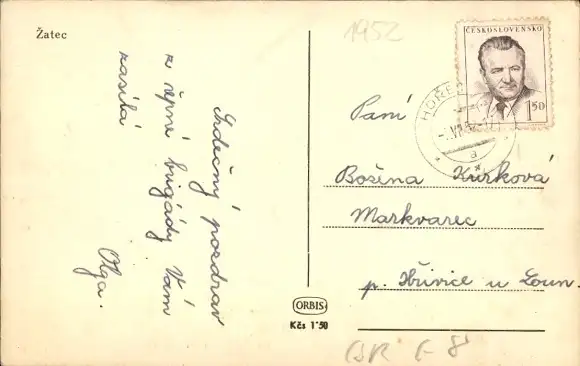 Žatec
1952
ČESKOSLOVENSKO
1'50
Srdečný pozdrav
z řepné brigády Vám
zasílá
Olga.
Paní
Božena Kůrková
Markvarec
p. Hřivice u Loun.
ORBIS
Kčs 1'50